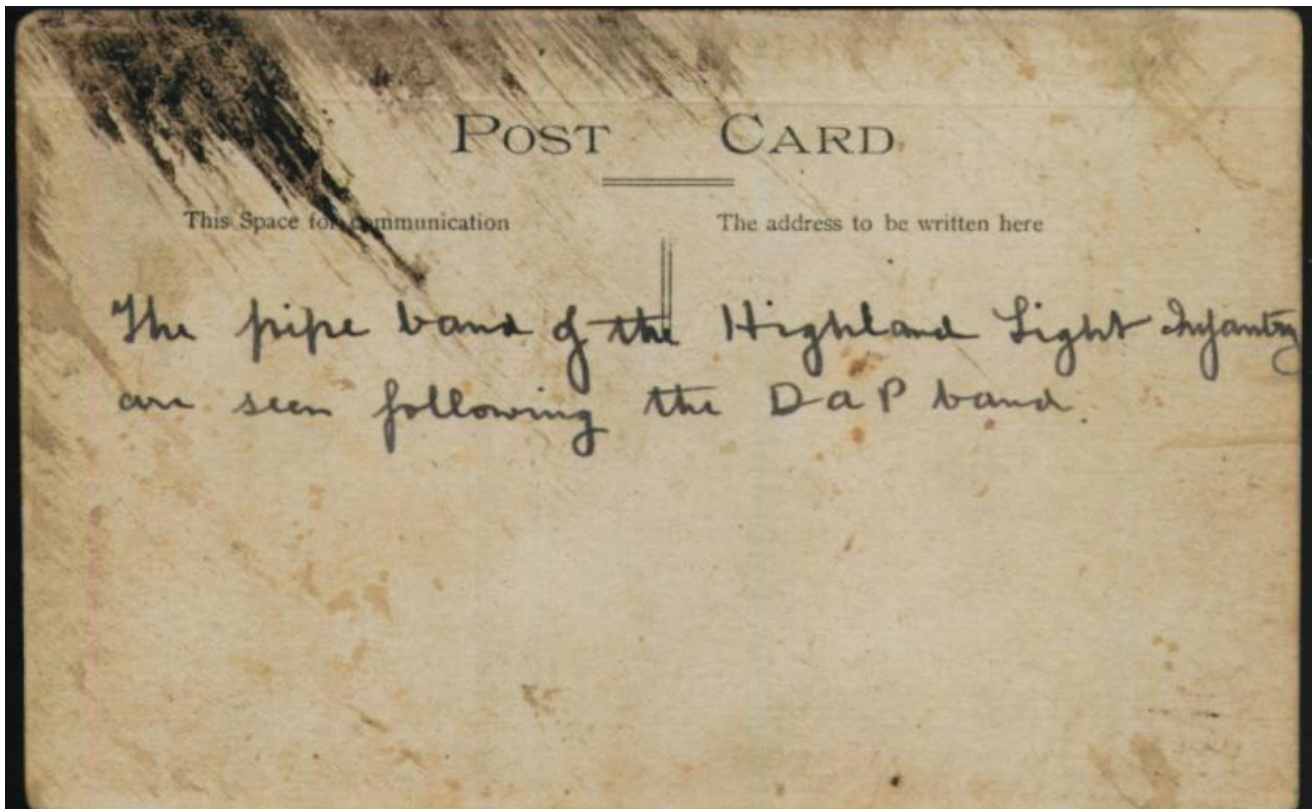 POST CARD
This Space for communication
The address to be written here
The pipe band of the Highland Light Infantry
are seen following the D a P band.